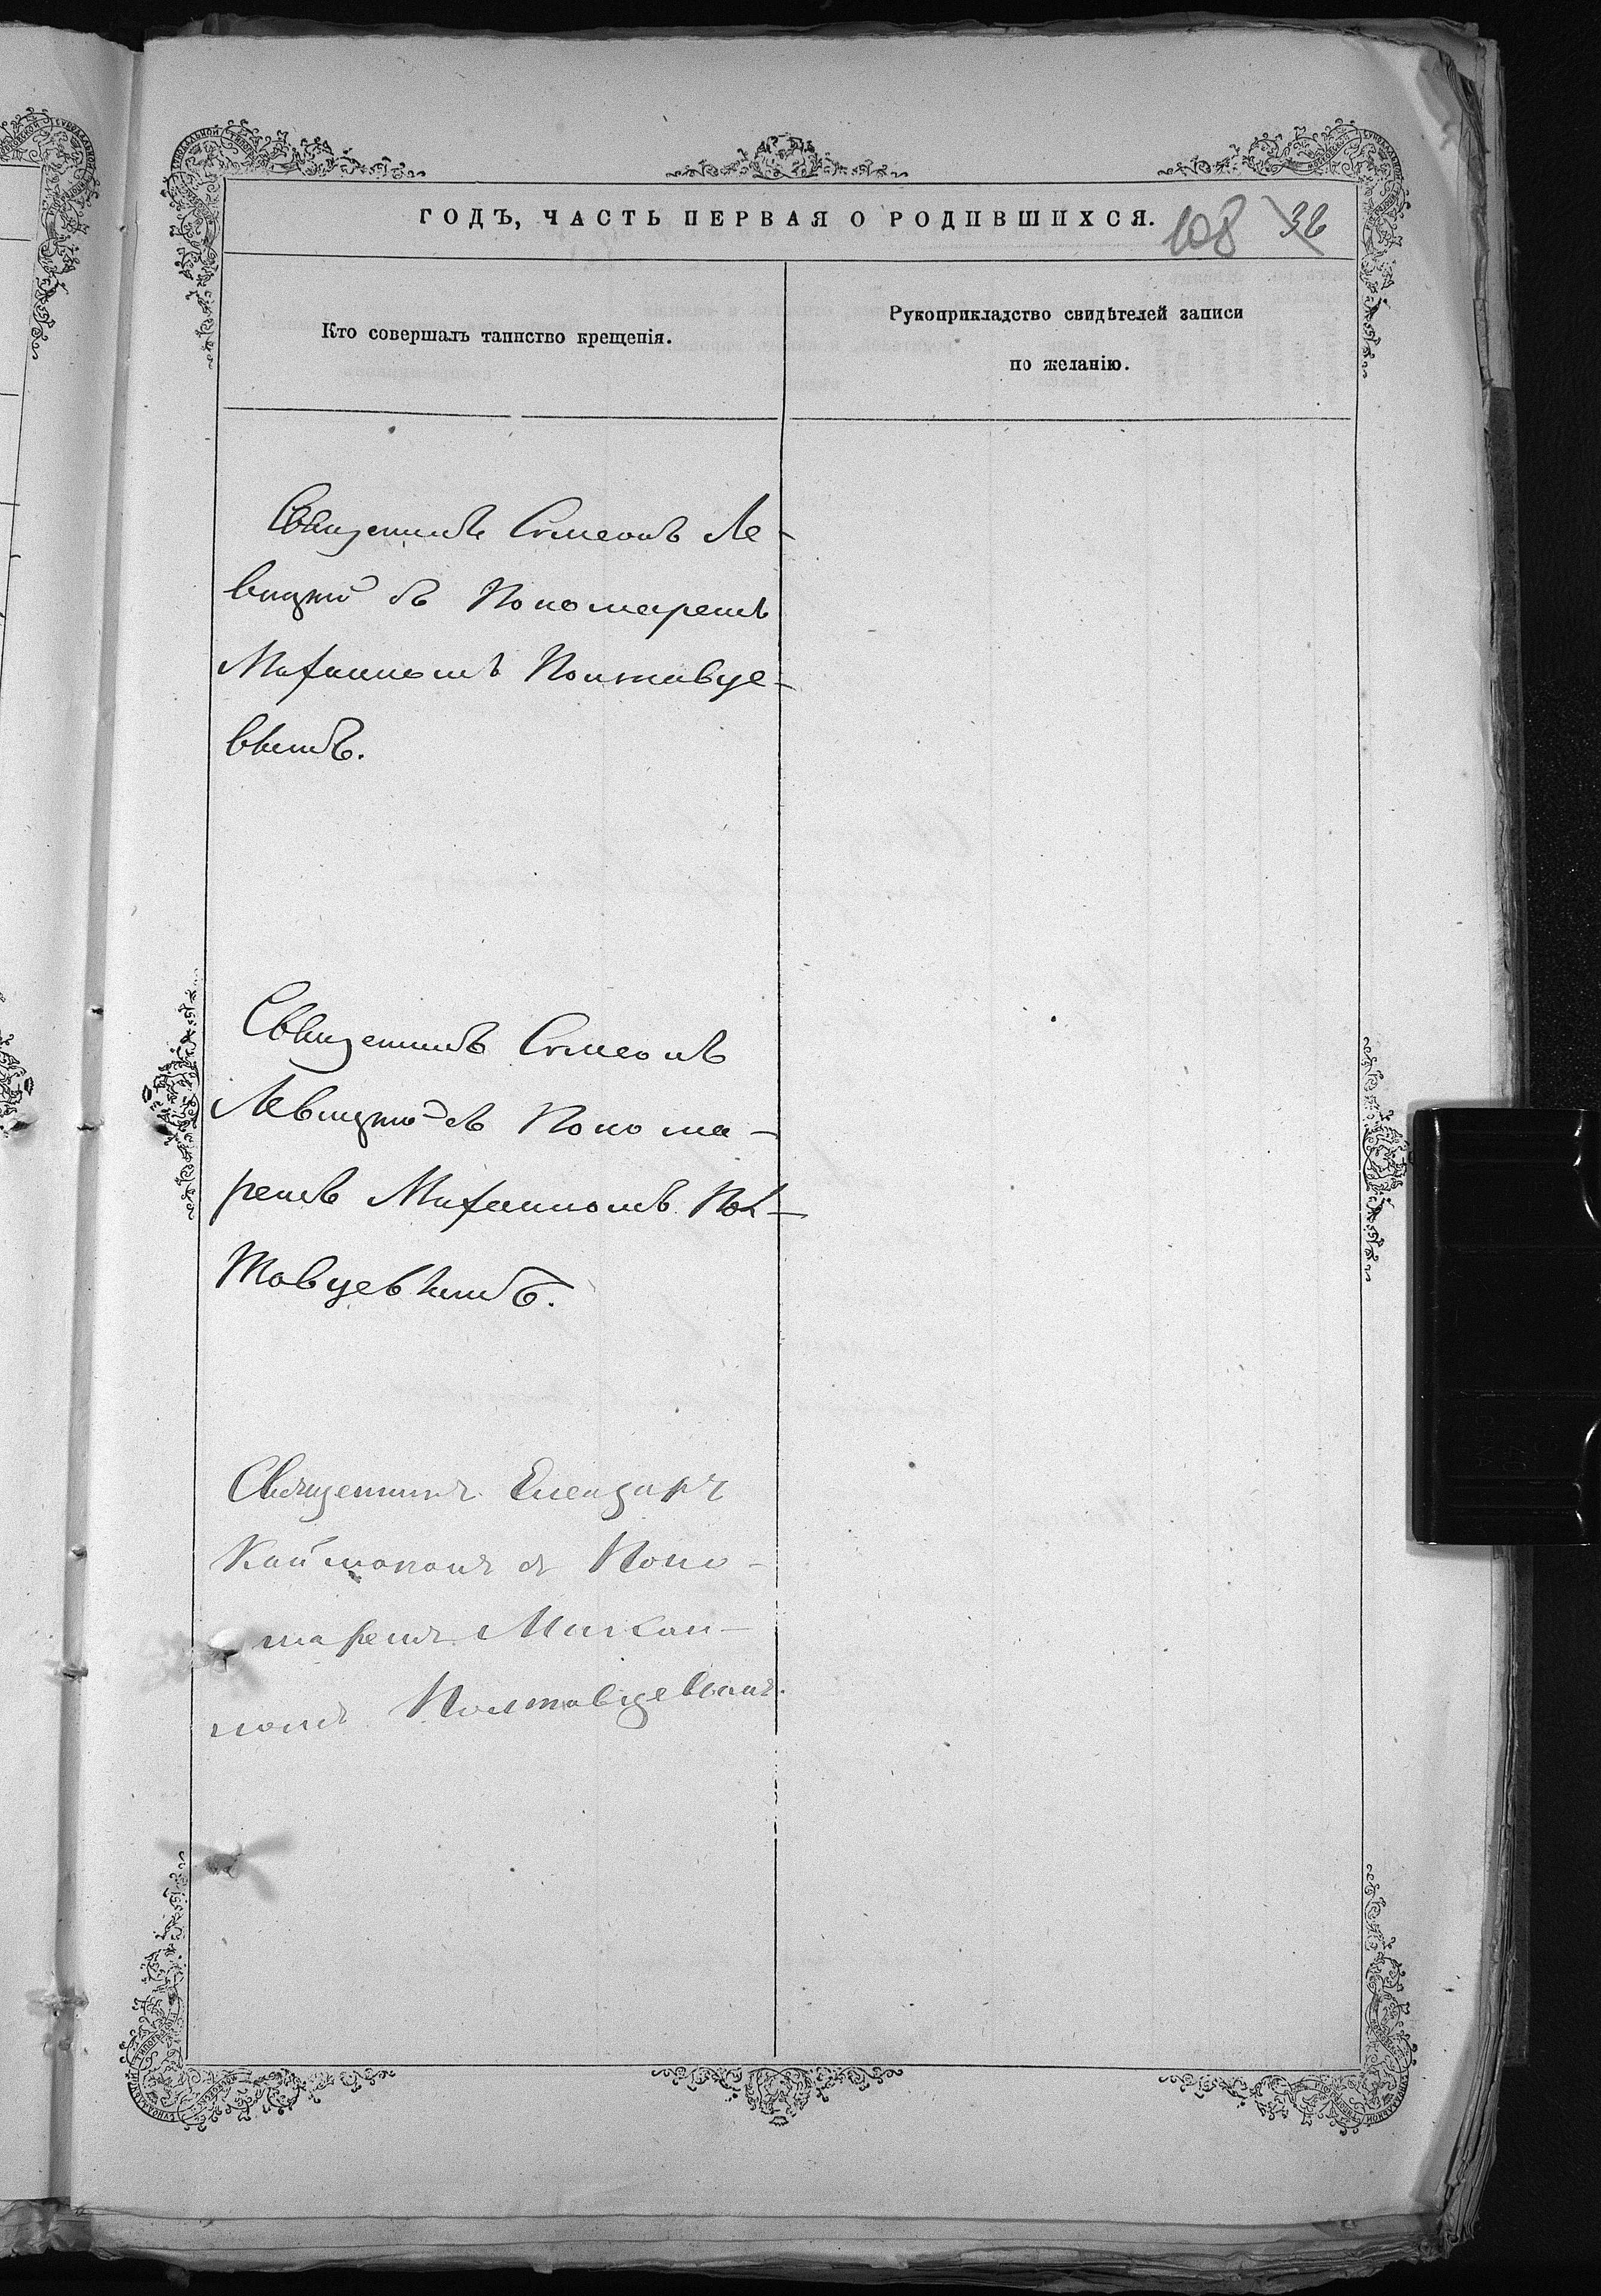 ГОДЪ, ЧАСТЬ ПЕРВАЯ О РОДИВШИХСЯ.
108 36
Кто совершалъ таинство крещенія.
Рукоприкладство свидѣтелей записи
по желанію.
Священникъ Симеонъ Ле-
вицкій съ Пономаремъ
Михаиломъ Полтавце-
вымъ.
Священникъ Симеонъ
Левицкій съ Понома-
ремъ Михаиломъ Пол-
тавцевымъ.
Священникъ Елеазаръ
Каймаканъ съ Поно-
маремъ Михаи-
ломъ Полтавцевымъ.